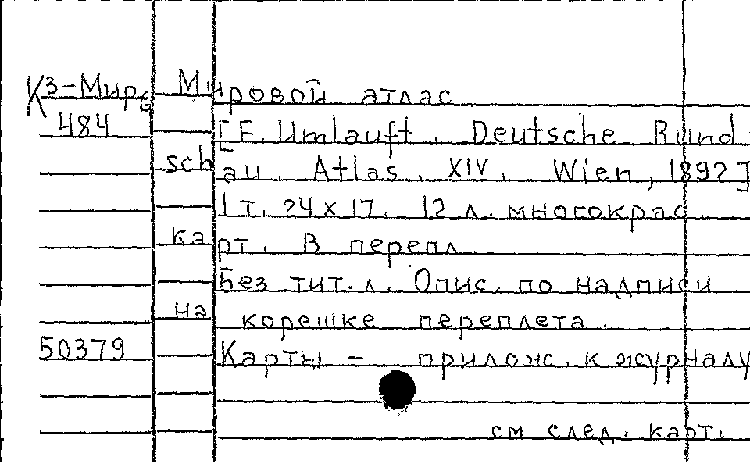 К3-Мир. Мировой атлас
484 [F. Umlauft. Deutsche Rund-
schau. Atlas. XIV. Wien, 1892]
1 т. 24 х 17. 12 л. многокрас.
карт. В перепл.
Без тит. л. Опис. по надписи
на корешке переплета.
50379 Карты - прилож. к журналу
см. след. карт.